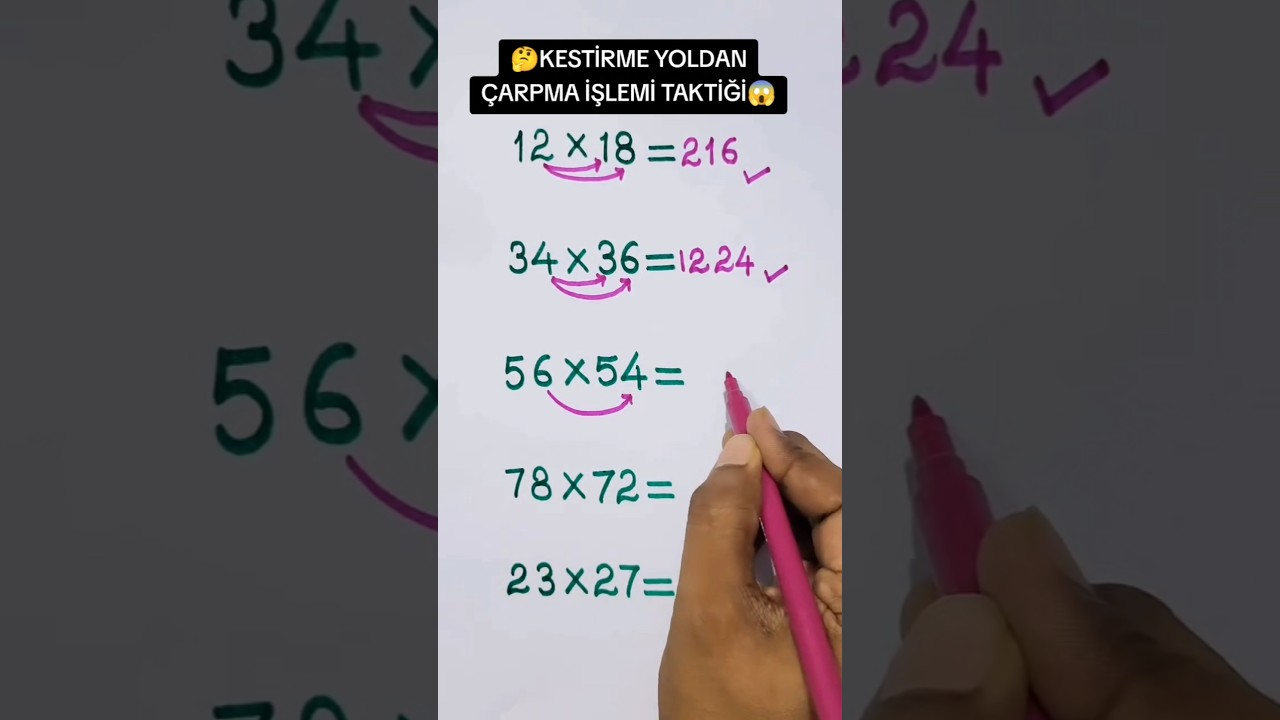 🤔KESTİRME YOLDAN
ÇARPMA İŞLEMİ TAKTİĞİ😱
12×18=216 ✓
34×36=1224 ✓
56×54=
78×72=
23×27=